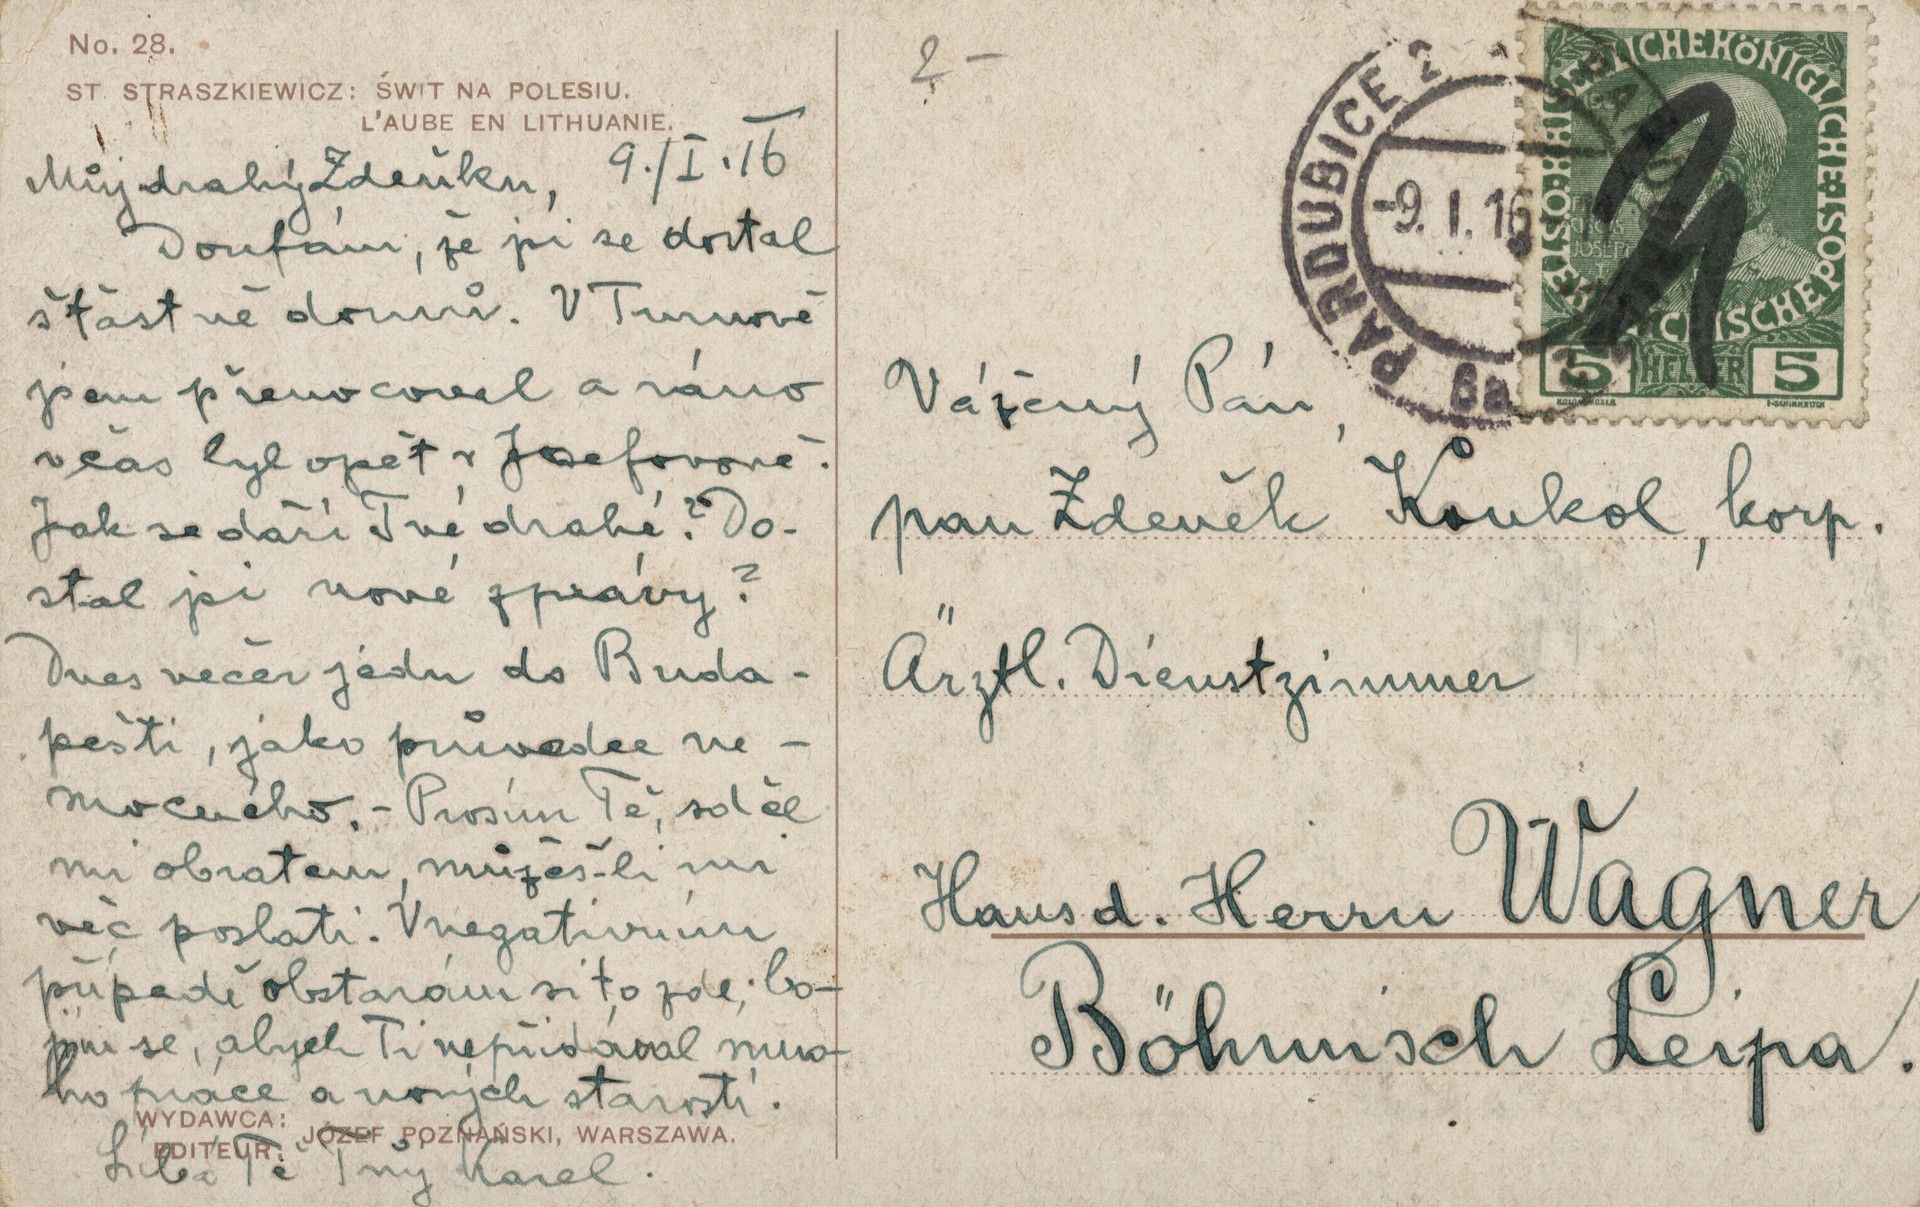 No. 28.
ST. STRASZKIEWICZ: ŚWIT NA POLESIU.
L'AUBE EN LITHUANIE.
Můj drahý Zdeňku, 9./I.16
Doufám, že jsi se dostal
šťastně domů. V Turnově
jsem přenocoval a ráno
včas byl opět v Josefově.
Jak se daří Tvé drahé? Do-
stal jsi nové zprávy?
Dnes večer jedu do Buda-
pešti, jako průvodce ne-
mocného. - Prosím Tě, sděl
mi obratem, můžeš-li mi
věc poslati. V negativním
případě obstarám si to zde; bo-
jím se, abych Ti nepřidával mno-
ho práce a nových starostí.
Líbá Tě Tvůj Karel.
WYDAWCA:
EDITEUR: JÓZEF POZNAŃSKI, WARSZAWA.
2 -
PARDUBICE 2
-9. I. 16
6a
KAISERLICHE KÖNIGLICHE ÖSTERREICHISCHE POST
5 HELLER 5
Vážený Pán,
pan Zdeněk Koukol, korp.
Ärztl. Dienstzimmer
Haus d. Herrn Wagner
Böhmisch Leipa.